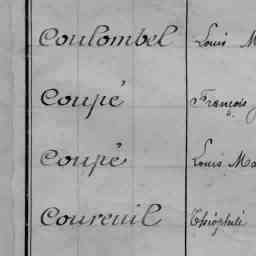 Coulombel Louis M
Coupé François
Coupé Louis Ma
Coureuil Théophile